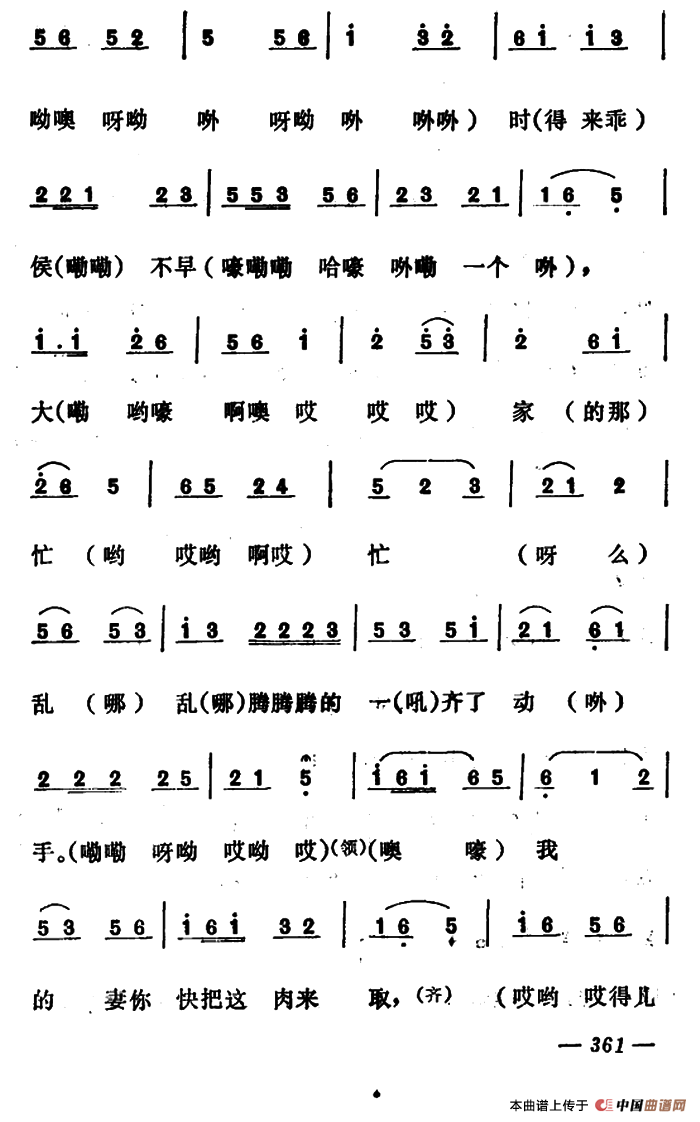 56 52 | 5 56 | i 32 | 6i i3 |
呦噢 呀呦 哟 呀呦 哟 哟哟) 时(得 来乖)
221 23 | 553 56 | 23 21 | 16 5 |
侯(嘞嘞) 不早(嚎嘞嘞 哈嚎 哟嘞 一个 哟),
i.i 26 | 56 i | 2 53 | 2 6i |
大(嘞 哟嚎 啊噢 哎 哎 哎) 家 (的那)
26 5 | 65 24 | 5 2 3 | 21 2 |
忙 (哟 哎哟 啊哎) 忙 (呀 么)
56 53 | i3 2223 | 53 5i | 21 61 |
乱 (哪) 乱(哪)腾腾腾的 一(吼)齐了 动 (哟)
222 25 | 21 5 | i6i 65 | 6 1 2 |
手。(嘞嘞 呀呦 哎呦 哎)(领)(噢 嚎) 我
53 56 | i6i 32 | 16 5 | i6 56 |
的 妻你 快把这 肉来 取, (齐) (哎哟 哎得儿
— 361 —
本曲谱上传于 中国曲谱网